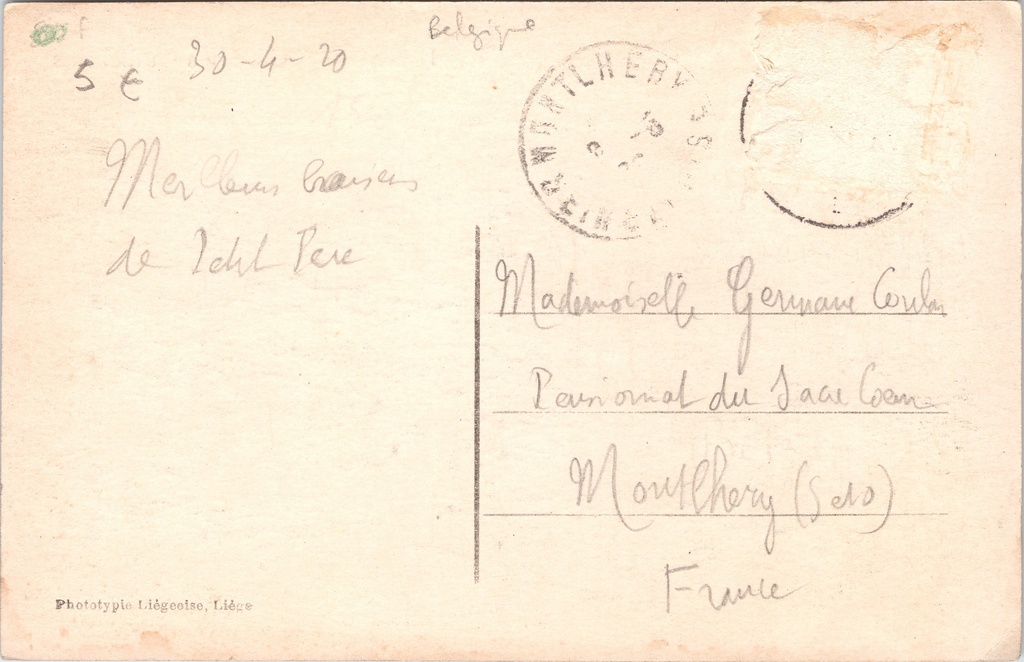 Belgique
5 €
30-4-20
MONTLHERY
Meilleurs baisers
de Petit Père
Mademoiselle Germaine
Pensionnat du Sacre Coeur
Montlhery (S et O)
France
Phototypie Liégeoise, Liége